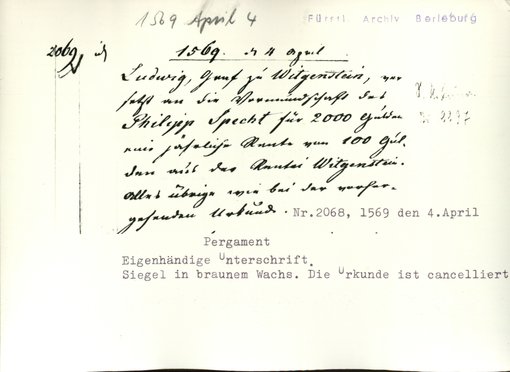 1569 April 4
Fürstl. Archiv Berleburg
2069
1569. d 4 April
Ludwig, Graf zu Witgenstein, ver
setzt an die Vormundschaft des
Philipp Specht für 2000 Gulden
eine jährliche Rente von 100 Gul.
den aus der Rentei Witgenstein.
Alles übrige wie bei der vorher-
gehenden Urkunde. Nr.2068, 1569 den 4.April
Pergament
Eigenhändige Unterschrift.
Siegel in braunem Wachs. Die Urkunde ist cancelliert